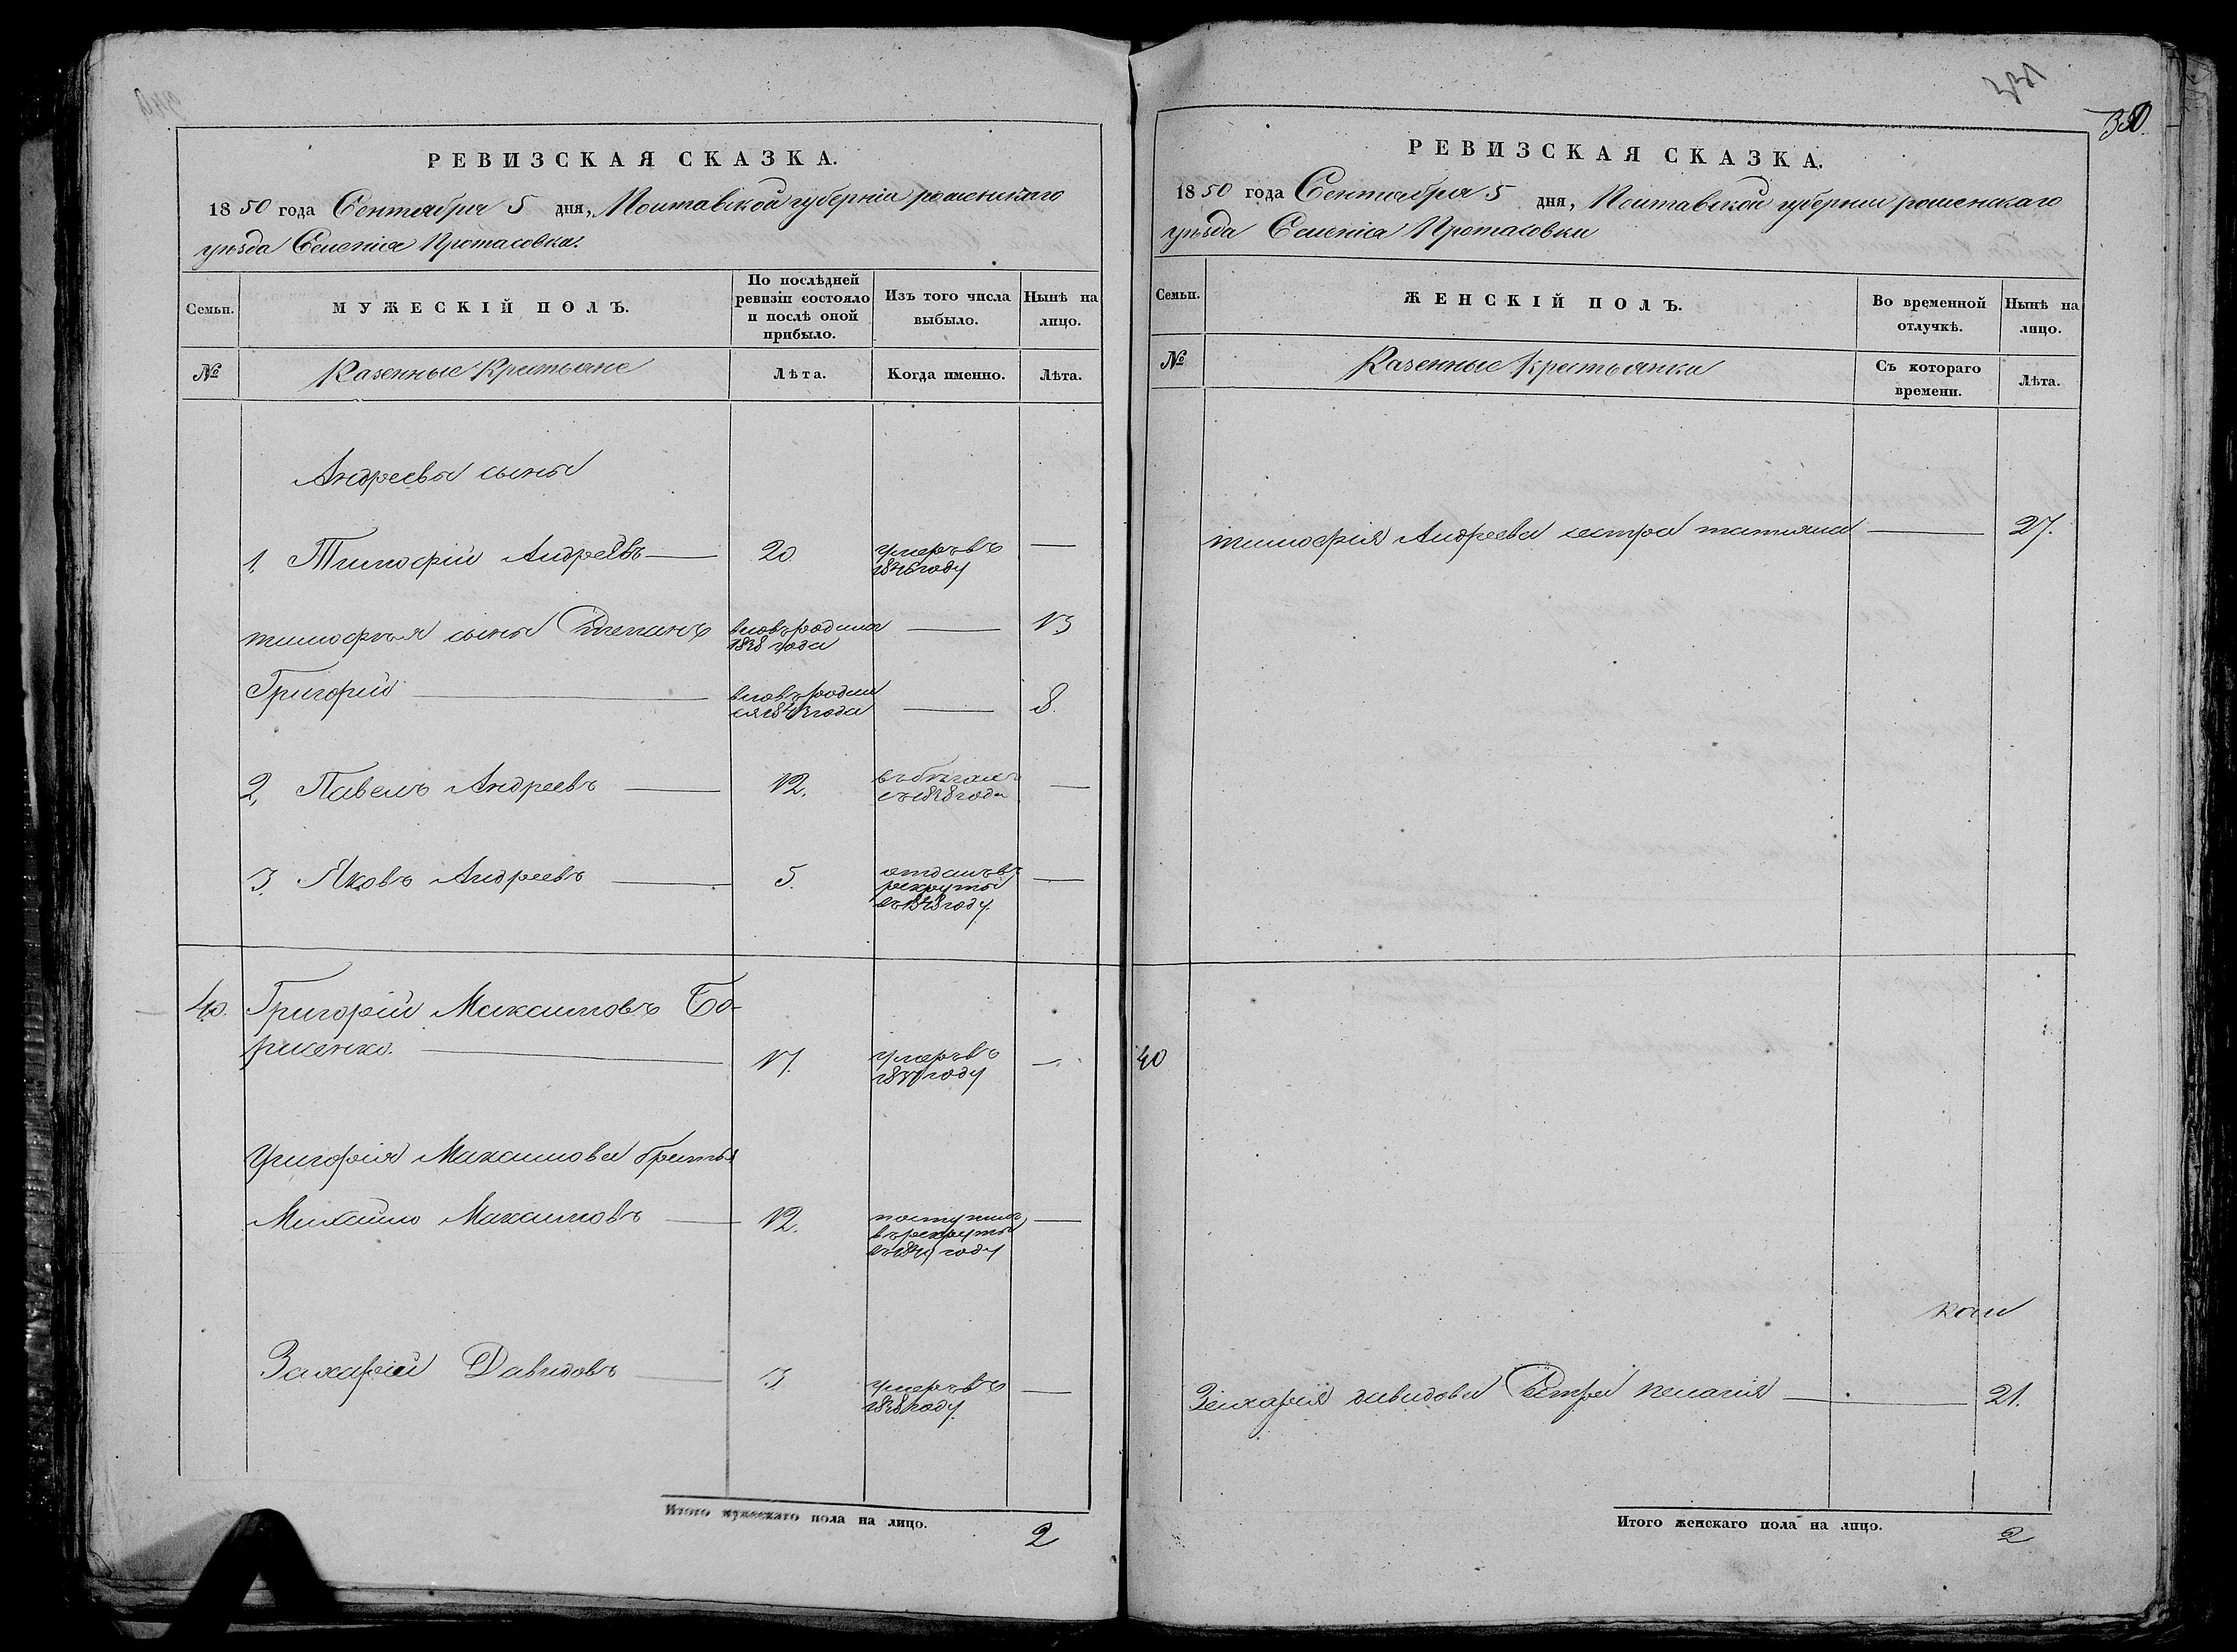 РЕВИЗСКАЯ СКАЗКА.
1850 года Сентября 5 дня, Полтавской губерніи роменскаго
уѣзда Селенія Протасовки.
Семьи.
МУЖЕСКІЙ ПОЛЪ.
По послѣдней
ревизіи состояло
и послѣ оной
прибыло.
Изъ того числа
выбыло.
Нынѣ на
лицо.
№
Казенные Крестьяне
Лѣта.
Когда именно.
Лѣта.
Андреевы сыны
1. Тимофій Андреевъ 20. умеръ въ
1846 году
тимофѣя сыны Степанъ вновь родился 13
1838 года
Григорій вновь родил 8.
ся 1843 года
2, Павелъ Андреевъ 12. въ бѣгахъ
съ 1838 года
3. Яковъ Андреевъ 5. отданъ въ
рекруты
въ 1848 году.
40. Григорій Максимовъ Бо-
рисенко. 17. умеръ въ
году
Григорія Максимова братья
Михайло Максимовъ 12. поступилъ
въ рекруты
году
Захарій Давидовъ 3. умеръ въ
1838 году.
Итого мужескаго пола на лицо. 2
350.
РЕВИЗСКАЯ СКАЗКА.
1850 года Сентября 5 дня, Полтавской губерніи роменскаго
уѣзда Селенія Протасовки
Семьи.
ЖЕНСКІЙ ПОЛЪ.
Во временной
отлучкѣ.
Нынѣ на
лицо.
№
Казенные крестьянки
Съ котораго
времени.
Лѣта.
тимофія Андреева сестра татьяна 27.
40
Захарія давидова Сестра пелагія 21.
Итого женскаго пола на лицо. 2